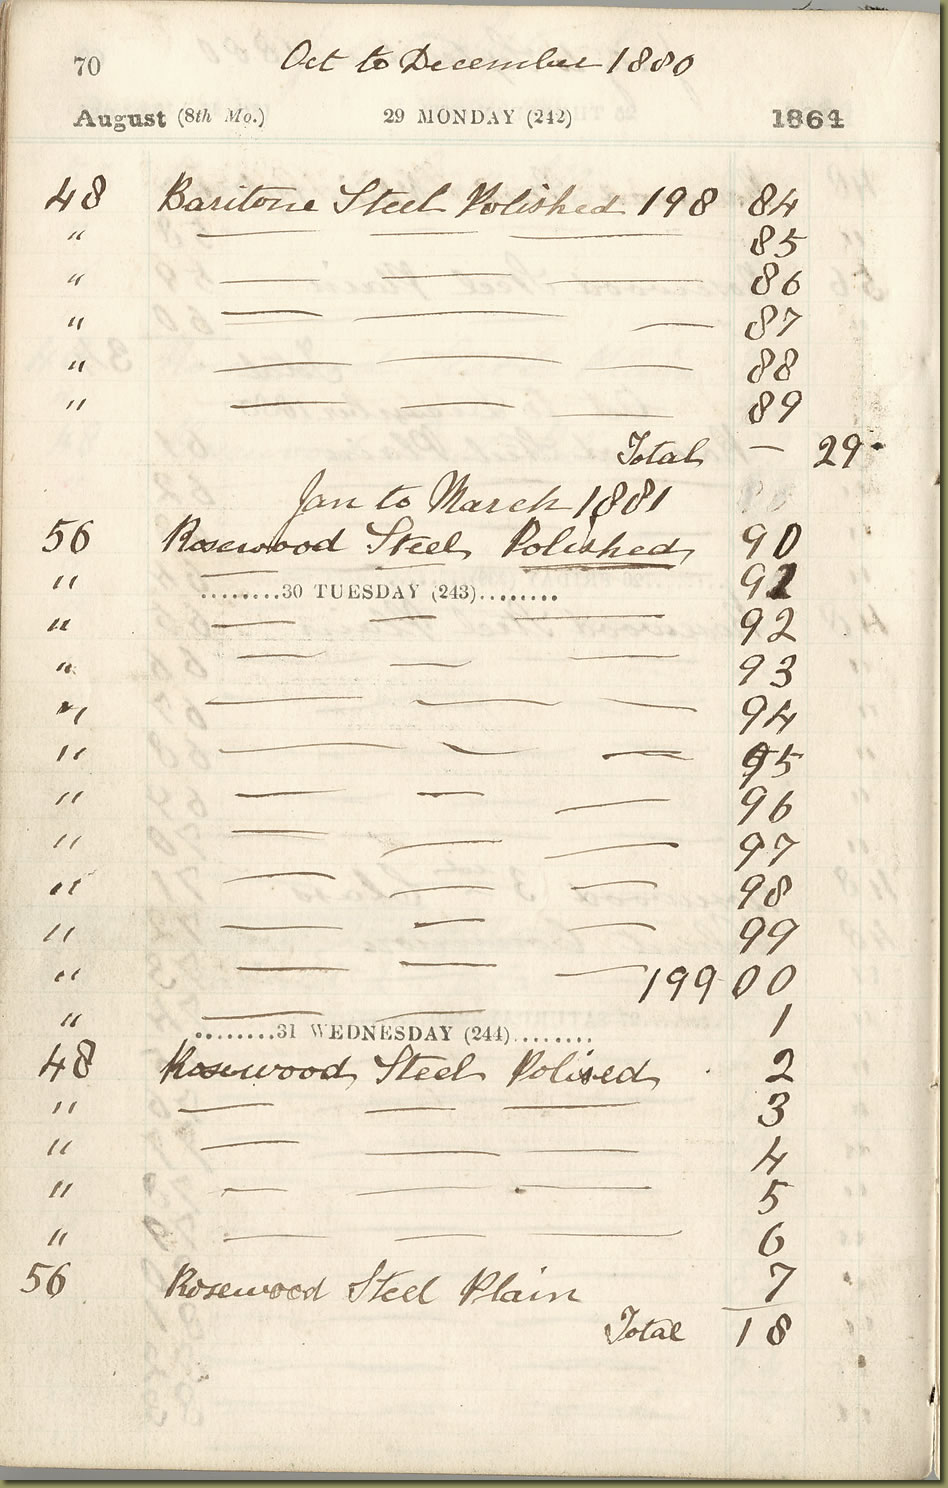 70 Oct to December 1880
August (8th Mo.) 29 MONDAY (242) 1864
48 Baritone Steel Polished 198 84
" — — — 85
" — — — 86
" — — — 87
" — — — 88
" — — — 89
Total — 29
Jan to March 1881
56 Rosewood Steel Polished 90
" — — — 91
........30 TUESDAY (243)........
" — — — 92
" — — — 93
" — — — 94
" — — — 95
" — — — 96
" — — — 97
" — — — 98
" — — — 99
" — — — 199 00
" — — 1
........31 WEDNESDAY (244)........
48 Rosewood Steel Polised 2
" — — — 3
" — — — 4
" — — — 5
" — — — 6
56 Rosewood Steel Plain 7
Total 18